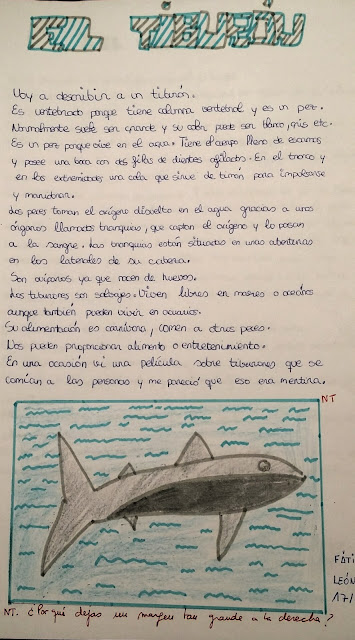 EL TIBURÓN
Voy a describir a un tiburón.
Es vertebrado porque tiene columna vertebral y es un pez.
Normalmente suele ser grande y su color puede ser blanco, gris etc.
Es un pez porque vive en el agua. Tiene el cuerpo lleno de escamas
y posee una boca con dos filas de dientes afilados. En el tronco y
en las extremidades una cola que sirve de timón para impulsarse
y maniobrar.
Los peces toman el oxígeno disuelto en el agua gracias a unos
órganos llamados branquias, que captan el oxígeno y lo pasan
a la sangre. Las branquias están situadas en unas aberturas
en los laterales de su cabeza.
Son ovíparos ya que nacen de huevos.
Los tiburones son salvajes. Viven libres en mares o océanos
aunque también pueden vivir en acuarios.
Su alimentación es carnívora, comen a otros peces.
Nos pueden proporcionar alimento o entretenimiento.
En una ocasión vi una película sobre tiburones que se
comían a las personas y me pareció que eso era mentira.
NT
FÁTI
LEÓN
17/
NT. ¿Por qué dejas un margen tan grande a la derecha?